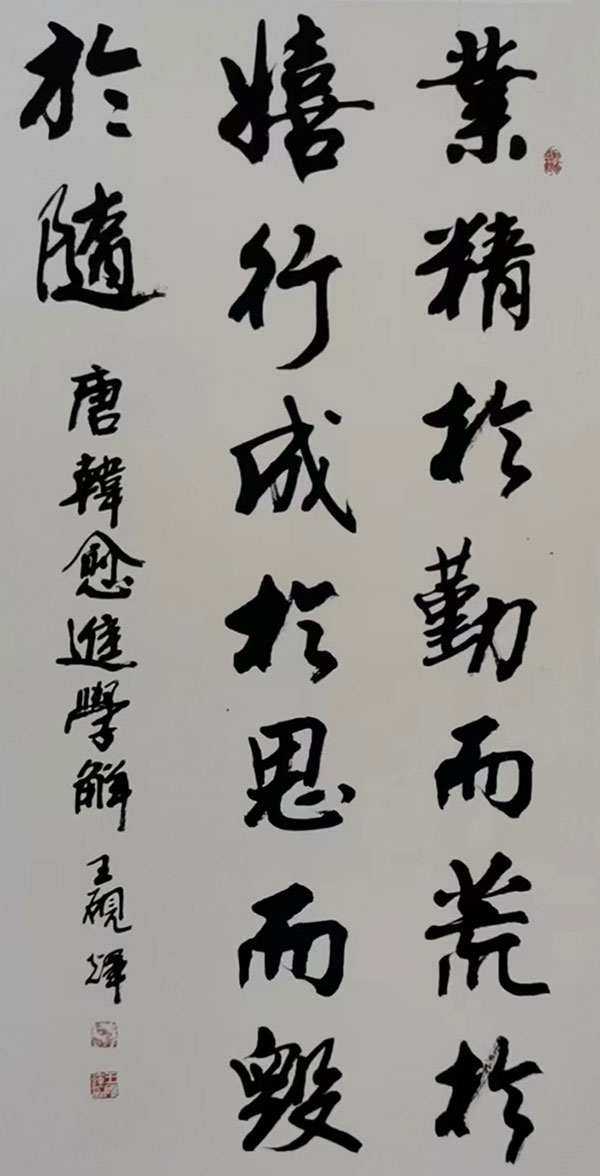 業精於勤而荒於
嬉行成於思而毀
於隨
唐韓愈進學解 王硯輝